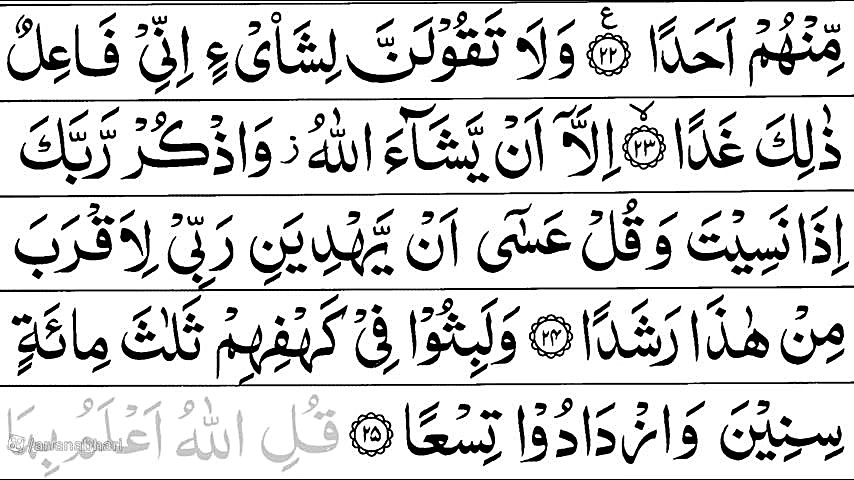 مِّنْهُمْ اَحَدًا ﴿۲۲﴾ ع وَلَا تَقُوْلَنَّ لِشَاْیْءٍ اِنِّیْ فَاعِلٌ
ذٰلِكَ غَدًا ﴿۲۳﴾ لا اِلَّاۤ اَنْ یَّشَآءَ اللّٰهُ ز وَاذْكُرْ رَّبَّكَ
اِذَا نَسِیْتَ وَقُلْ عَسٰۤی اَنْ یَّهْدِیَنِ رَبِّیْ لِاَقْرَبَ
مِنْ هٰذَا رَشَدًا ﴿۲۴﴾ وَلَبِثُوْا فِیْ كَهْفِهِمْ ثَلٰثَ مِائَةٍ
سِنِیْنَ وَازْدَادُوْا تِسْعًا ﴿۲۵﴾ قُلِ اللّٰهُ اَعْلَمُ بِمَا